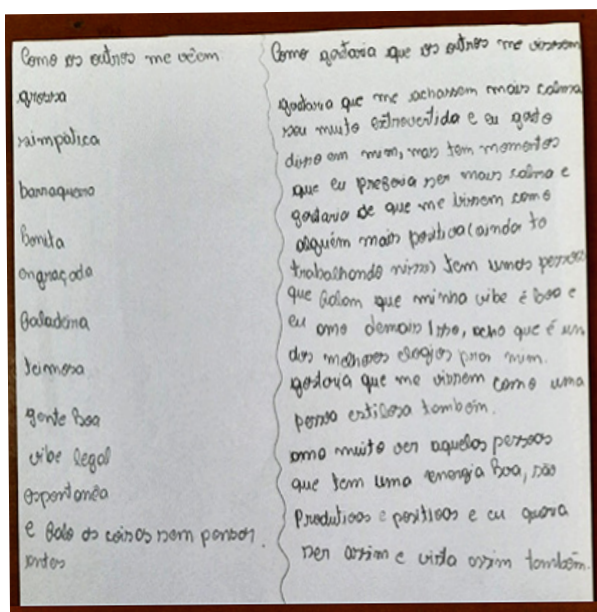 Como os outros me vêem
grossa
simpática
barraqueira
Bonita
engraçada
faladeira
teimosa
gente boa
vibe legal
espontanêa
e falo as coisas sem pensar
antes
Como gostaria que os outros me vissem
gostaria que me achassem mais calma
sou muito extrovertida e eu gosto
disso em mim, mas tem momentos
que eu preferia ser mais calma e
gostaria de que me vissem como
alguém mais positiva (ainda to
trabalhando nisso) tem umas pessoas
que falam que minha vibe é boa e
eu amo demais isso, acho que é um
dos melhores elogios pra mim.
gostaria que me vissem como uma
pessoa estilosa também.
amo muito ver aquelas pessoas
que tem uma energia boa, são
Produtivas e positivas e eu queria
ser assim e vista assim também.